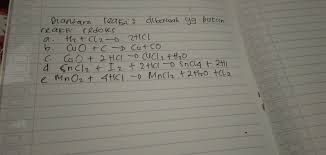 Diantara reaksi dibawah yg bukan
reaksi redoks
a. H2 + Cl2 → 2HCl
b. CuO + C → Cu + CO
c. CuO + 2HCl → CuCl2 + H2O
d SnCl2 + I2 + 2HCl → SnCl4 + 2HI
e MnO2 + 4HCl → MnCl2 + 2H2O + Cl2